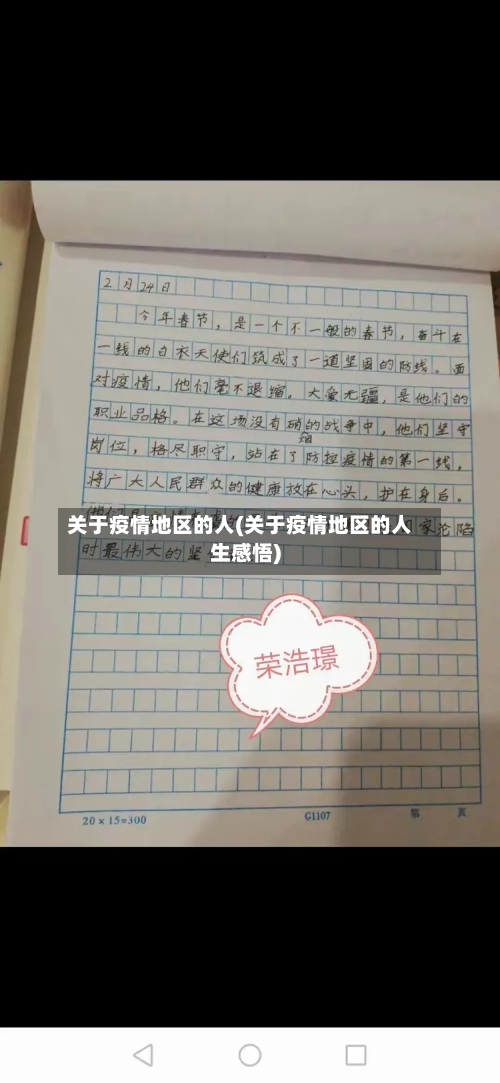 2月24日
今年春节，是一个不一般的春节，奋斗在
一线的白衣天使们筑成了一道坚固的防线。面
对疫情，他们毫不退缩。大爱无疆，是他们的
职业品格。在这场没有硝的战争中，他们坚守
烟
岗位，格尽职守，站在了防控疫情的第一线，
将广大人民群众的健康放在心头，护在身后。
关于疫情地区的人(关于疫情地区的人
生感悟)
家沦陷
时最伟大的坚
荣浩璟
20×15=300
G1107
第 页